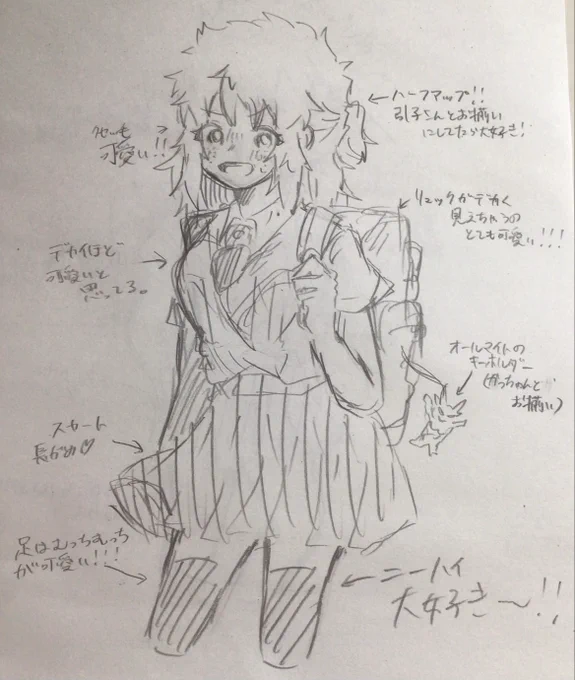 ハーフアップ!!
引子さんとお揃い
にしてたら大好き!
可愛い!!
リュックがデカく
見えちゃうの
とても可愛い!!!
デカイほど
可愛いと
思ってる。
オールマイトの
キーホルダー
(かっちゃんと
お揃い)
スカート
長がめ♡
足はむっちむっち
が可愛い!!!
ニーハイ
大好き〜!!